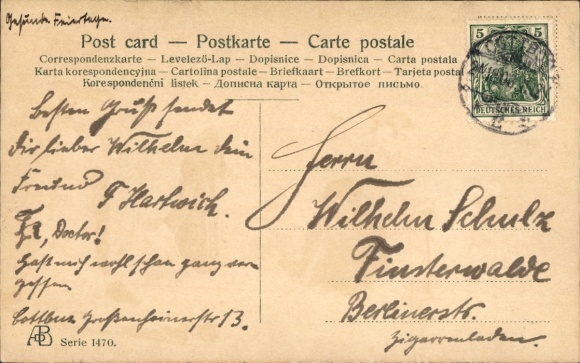 Gesunde Feiertage.
Post card — Postkarte — Carte postale
Correspondenzkarte – Levelező-Lap – Dopisnice – Dopisnica – Carta postala
Karta korespondencyjna – Cartolina postale – Briefkaart – Brefkort – Tarjeta postal
Korespondenční listek – Дописна карта – Открытое письмо.
5 5
DEUTSCHES REICH
Besten Gruß sendet
dir lieber Wilhelm dein
Freund F Hartwich.
Doctor!
Hast mich wohl schon ganz ver
gessen
Cottbus Großenhainerstr 13.
Herrn
Wilhelm Schulz
Finsterwalde
Berlinerstr.
Zigarrenladen.
AB
Serie 1470.